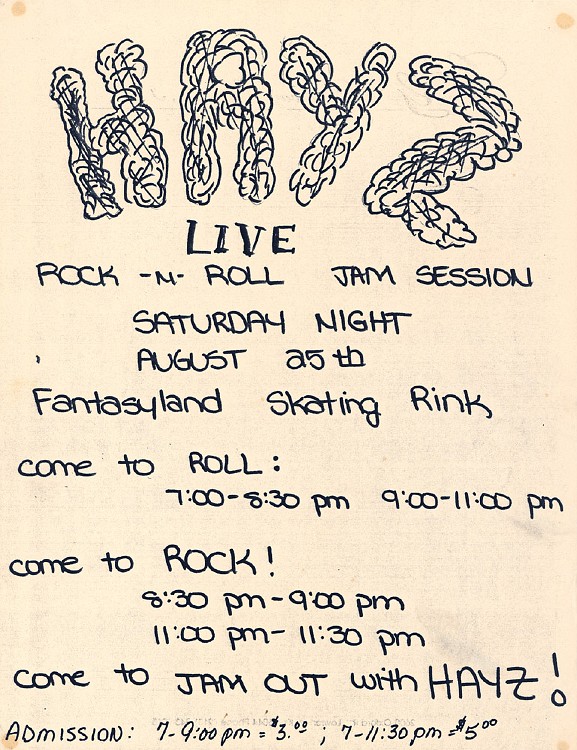 HAYZ
LIVE
ROCK -N- ROLL JAM SESSION
SATURDAY NIGHT
AUGUST 25th
Fantasyland Skating Rink
come to ROLL:
7:00-8:30 pm 9:00-11:00 pm
come to ROCK!
8:30 pm-9:00 pm
11:00 pm-11:30 pm
come to JAM OUT with HAYZ!
ADMISSION: 7-9:00pm = $3.00 ; 7-11:30pm = $5.00